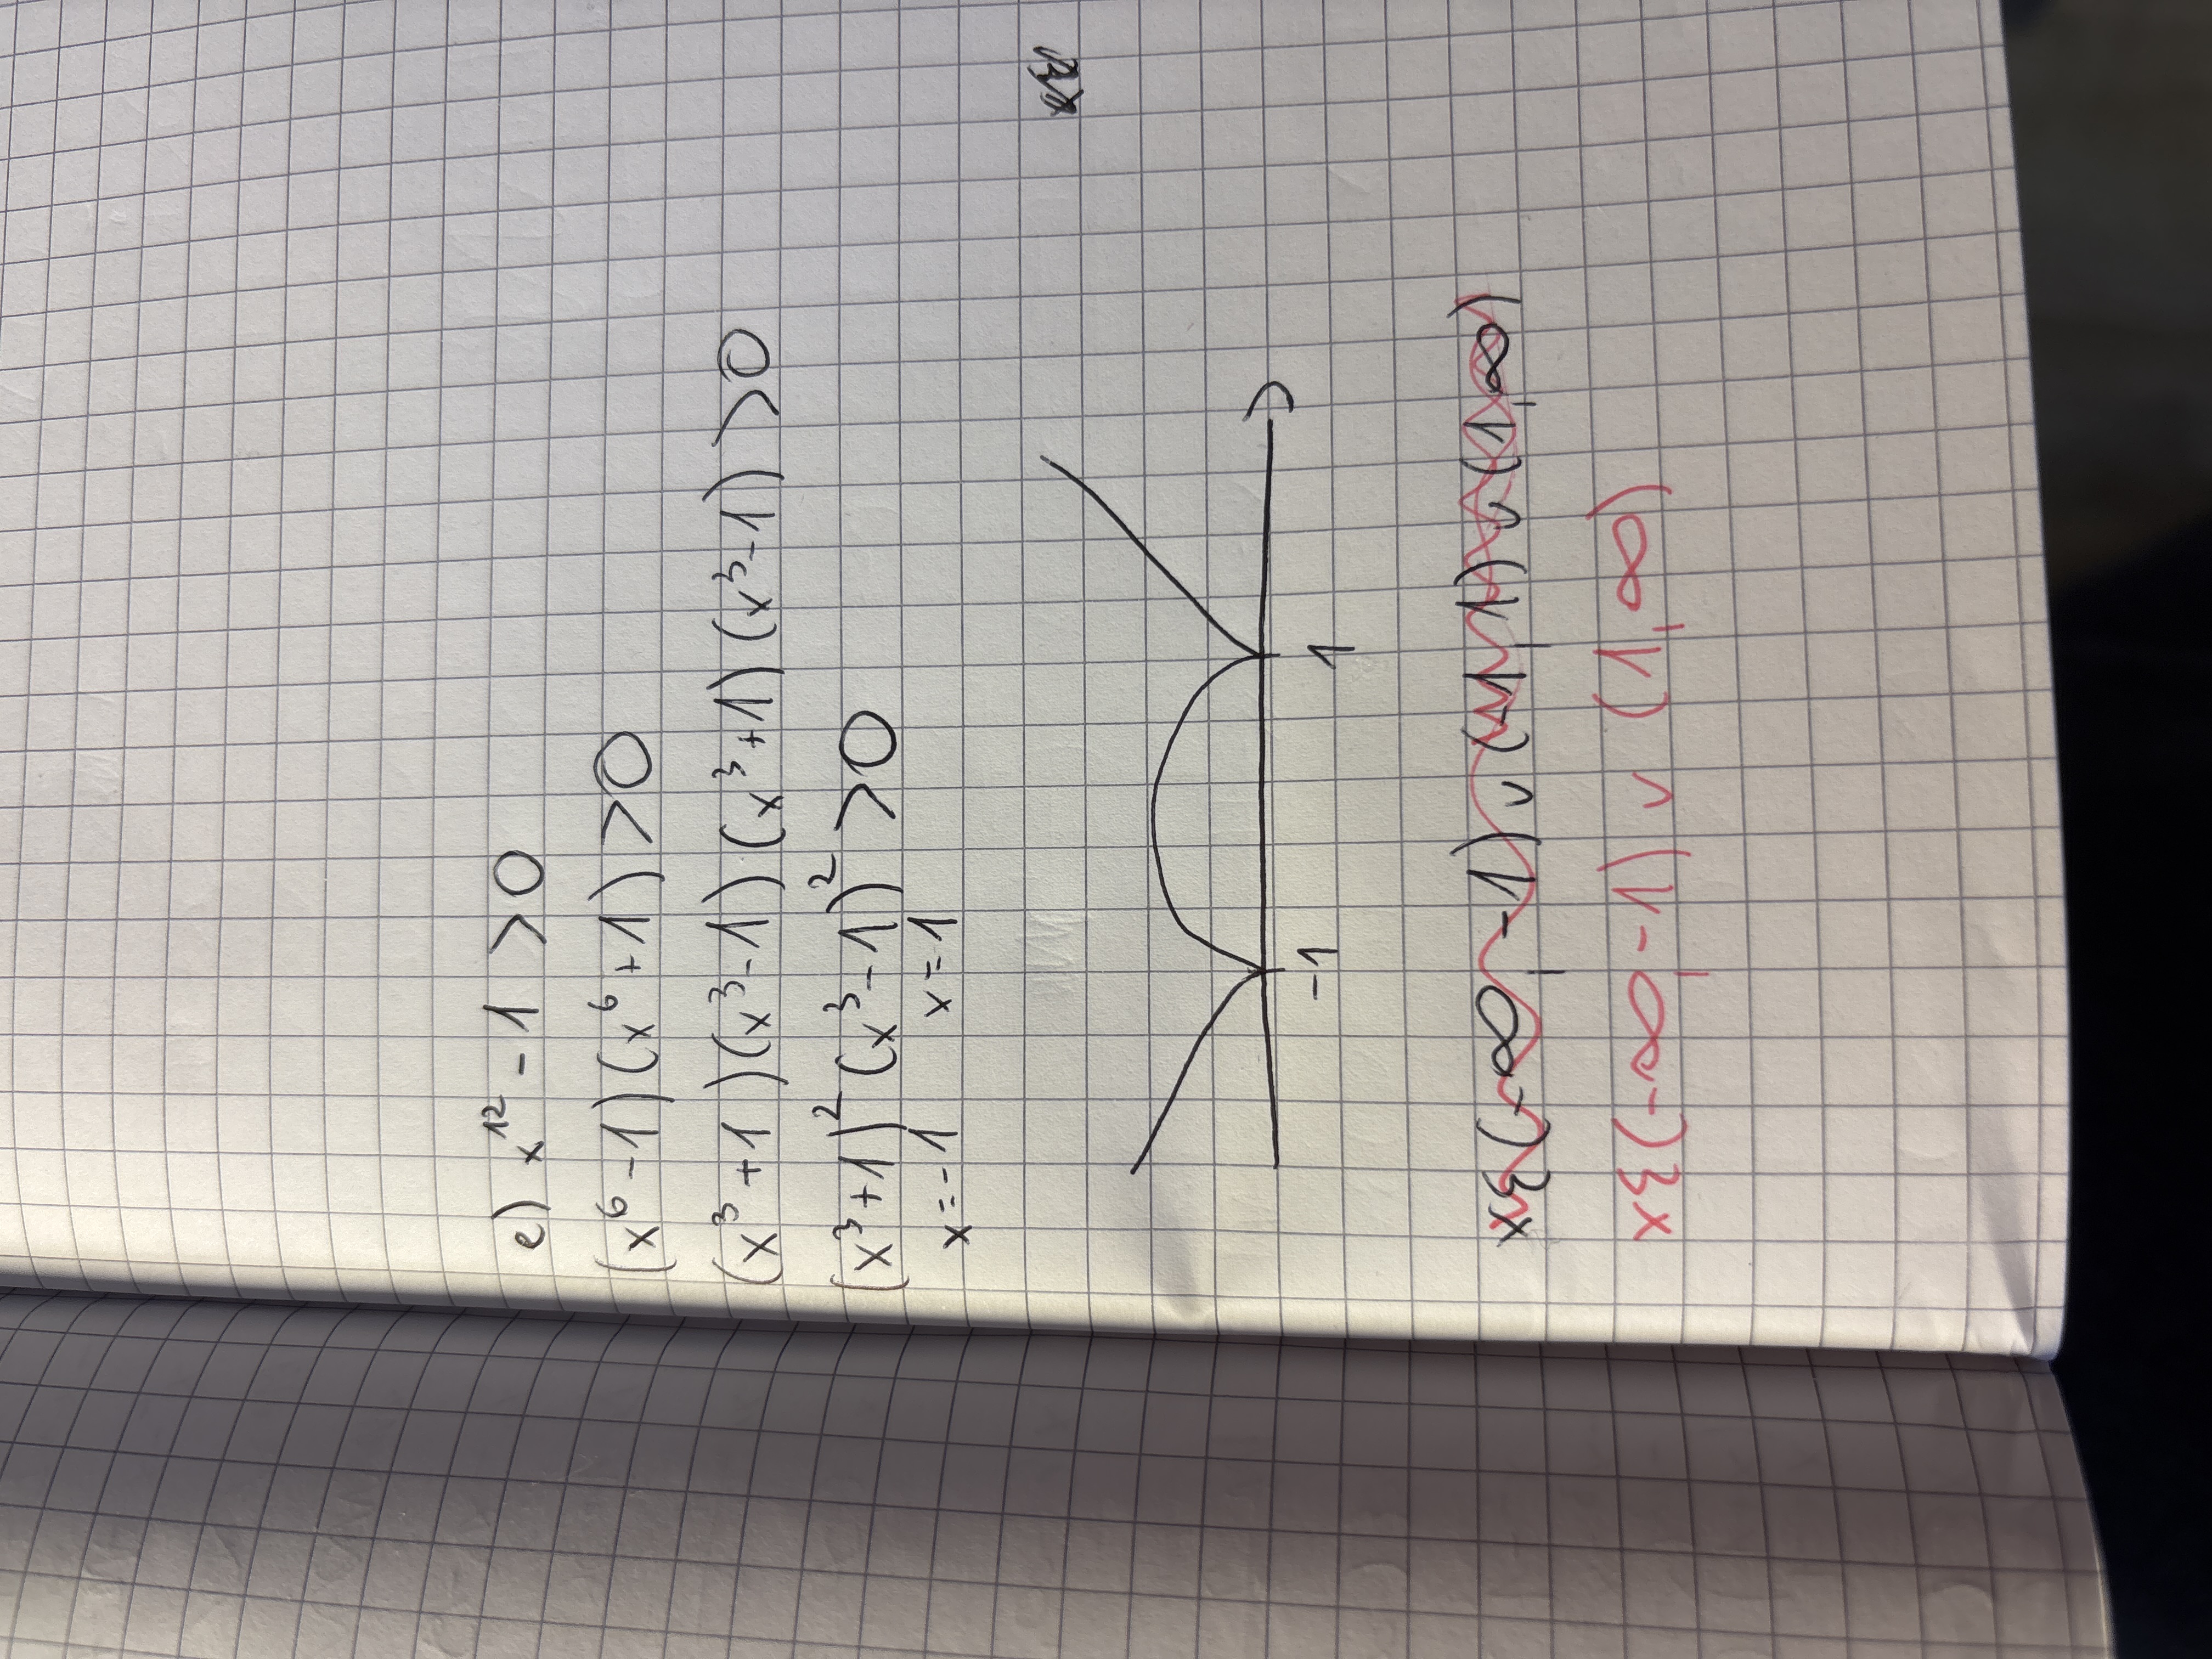 e) x¹² - 1 > 0
(x⁶ - 1)(x⁶ + 1) > 0
(x³ + 1)(x³ - 1)(x³ + 1)(x³ - 1) > 0
(x³ + 1)² (x³ - 1)² > 0
x = -1 x = 1
-1 1
x ∈ (-∞, -1) ∪ (-1, 1) ∪ (1, ∞)
x ∈ (-∞, -1) ∪ (1, ∞)